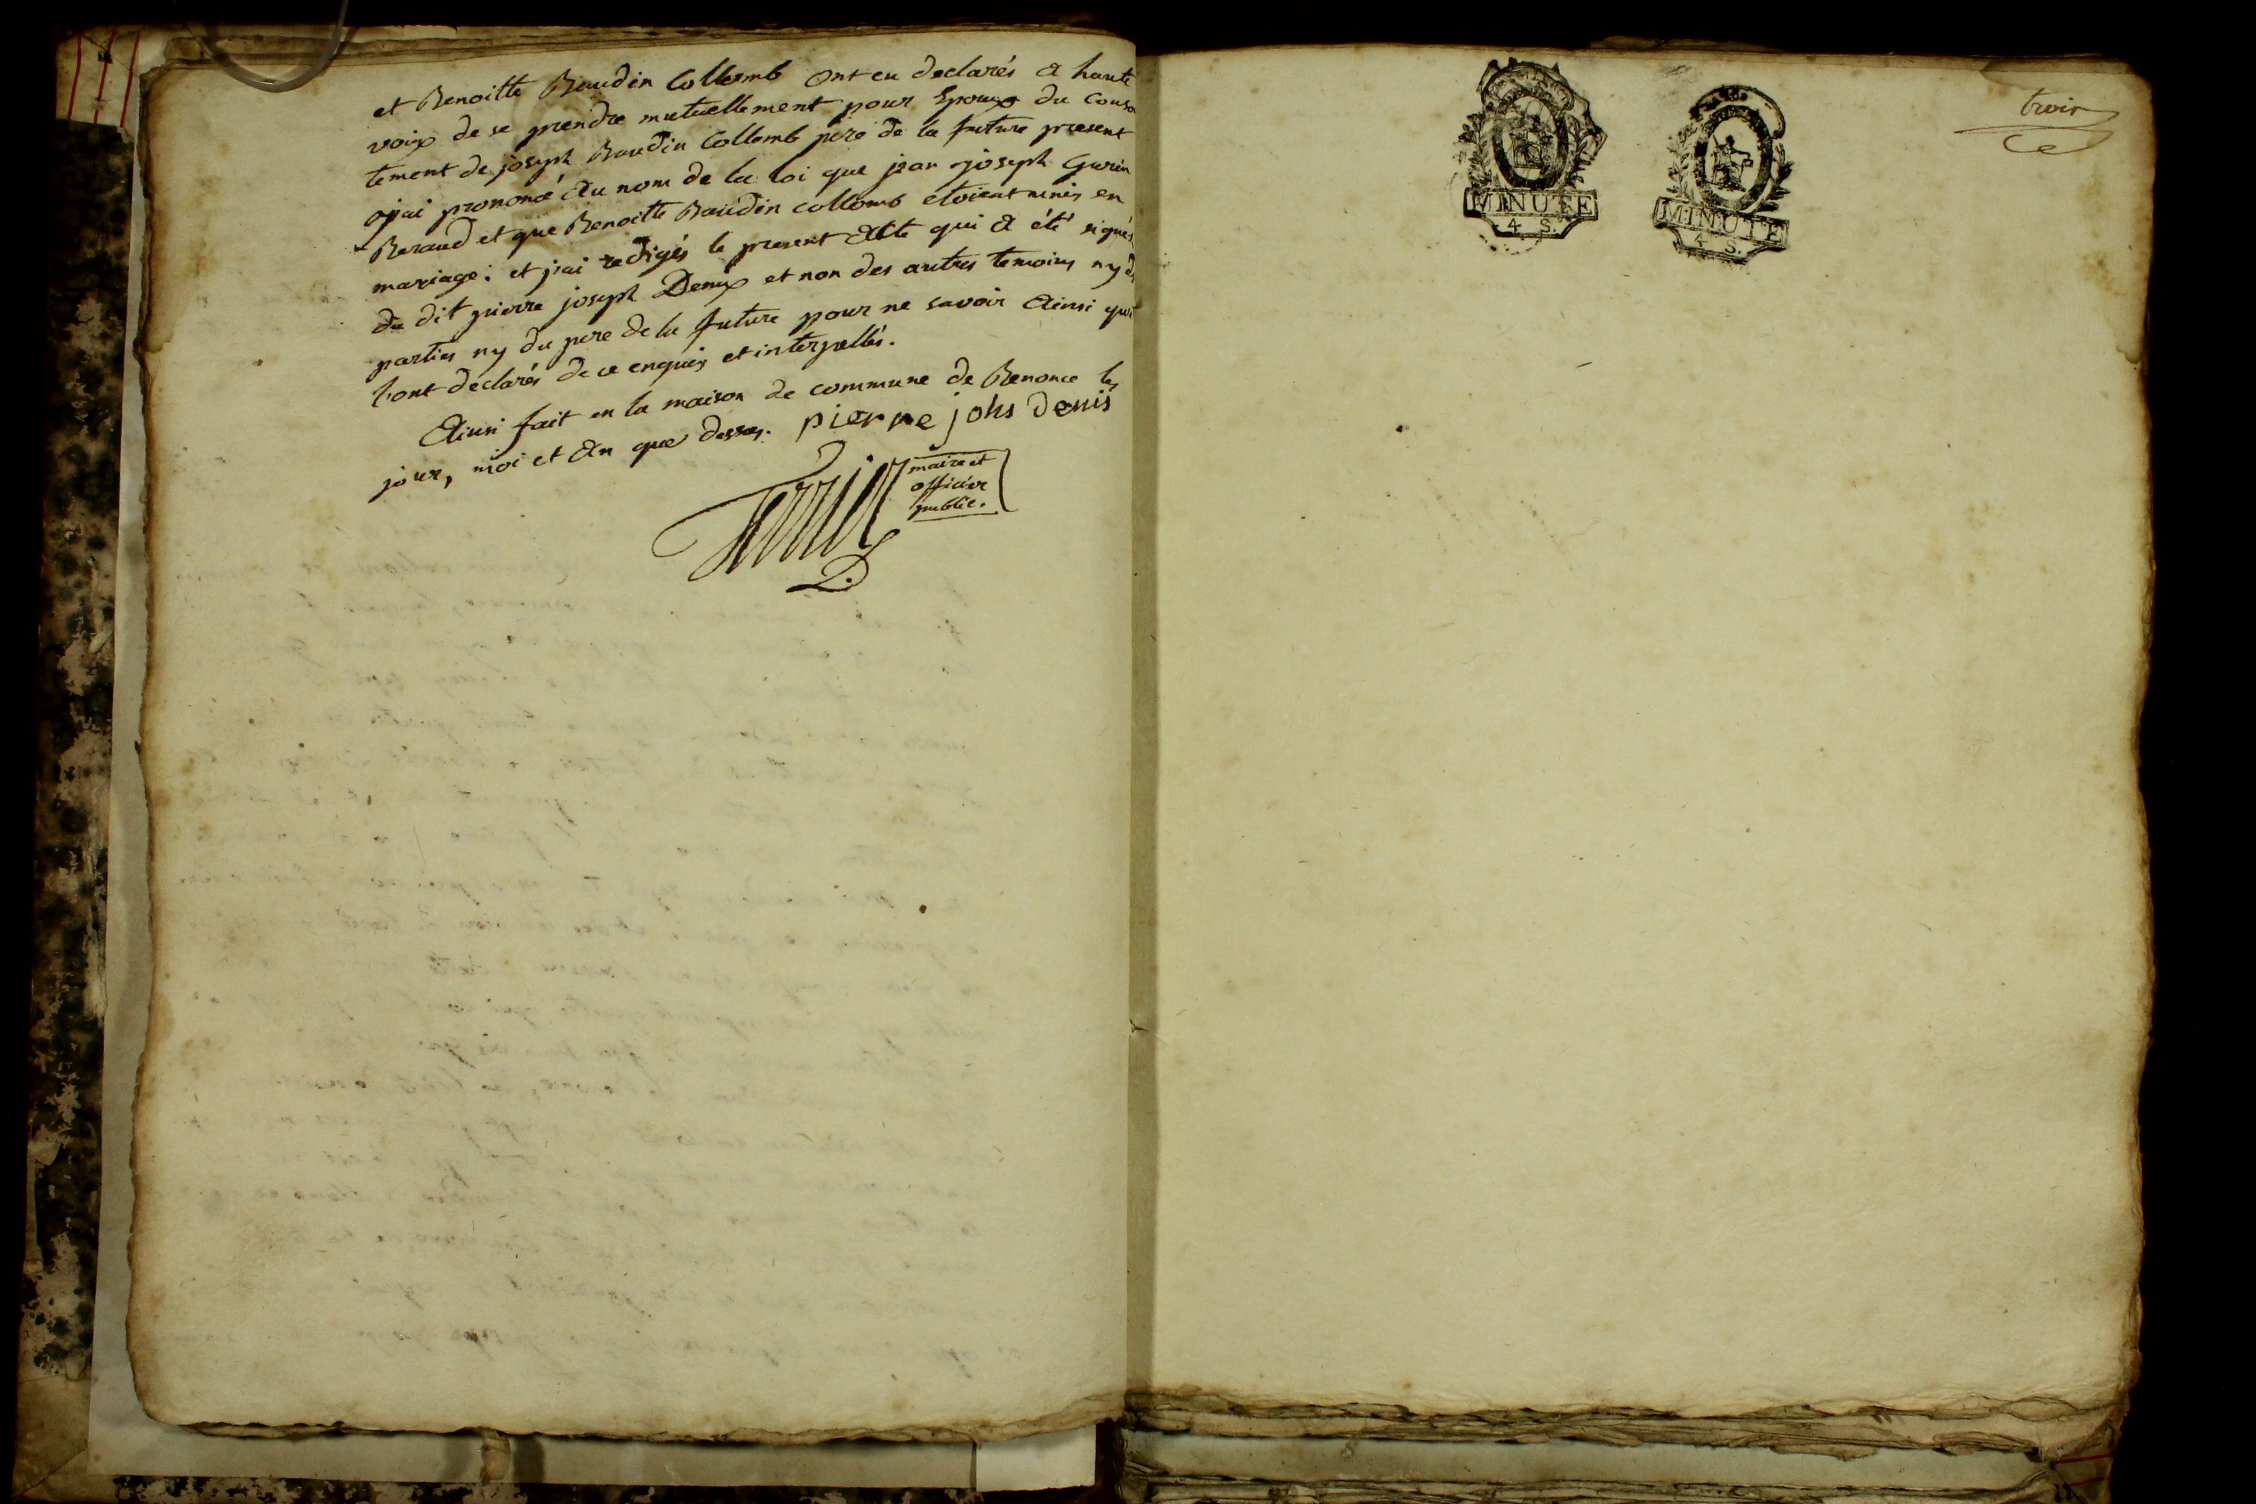 et Benoitte Baudin Collomb ont eu declarés a haute
voix de se prendre mutuellement pour Epoux du conse
tement de joseph Baudin Collomb pere de la future present
j'ai prononcé au nom de la loi que jean joseph
Beraud et que Benoitte Baudin collomb etoient unis en
mariage; et j'ai redigés le present Acte qui a été signés
du dit pierre joseph Denix et non des autres temoins ny d
parties ny du pere de la future pour ne savoir Ainsi qu'i
l'ont declarés de ce enquis et interpellés.
Ainsi fait en la maison de commune de Renonce les
jour, moi et An que dessus. pierre johs denis
maire et
officier
public.
trois
MINUTE
4 S.
MINUTE
4 S.